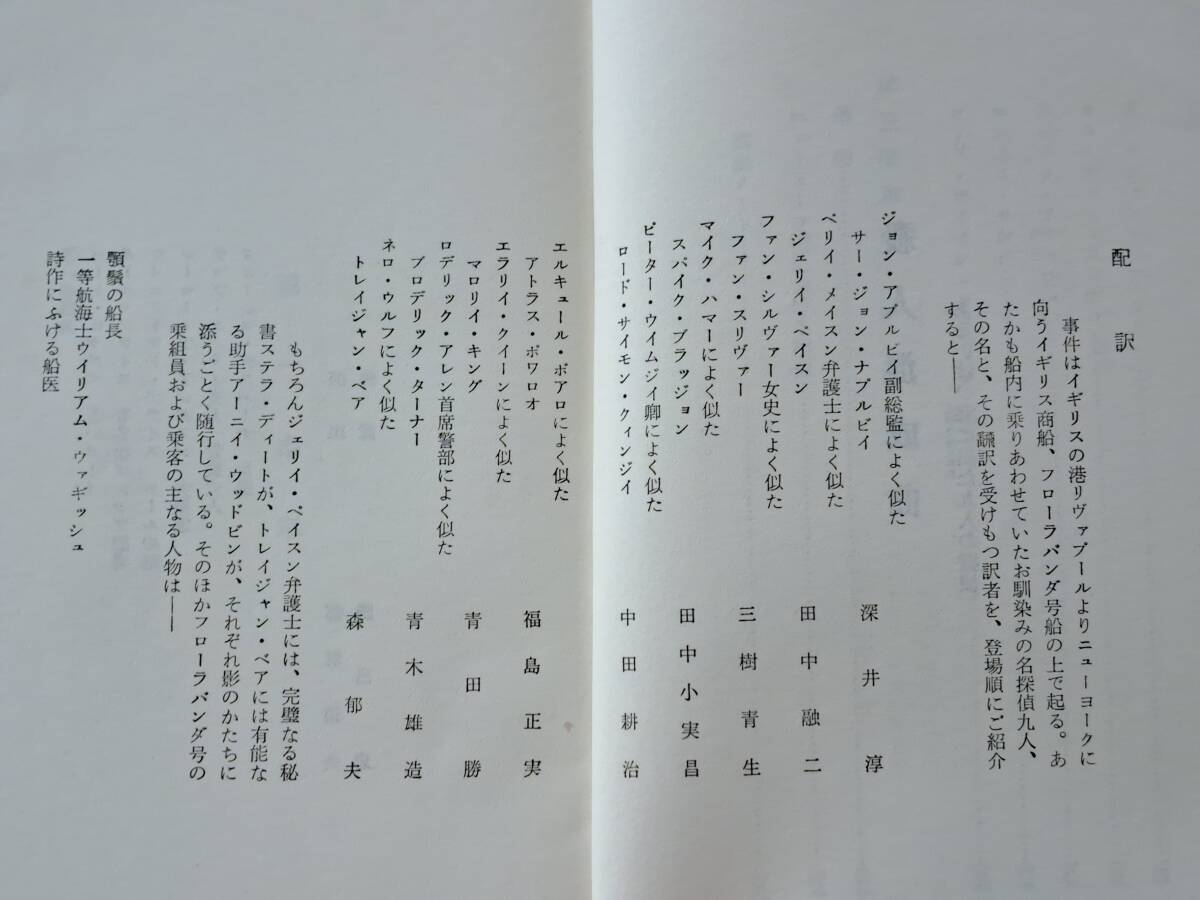 配訳
事件はイギリスの港リヴァプールよりニューヨークに
向うイギリス商船、フローラバンダ号船の上で起る。あ
たかも船内に乗りあわせていたお馴染みの名探偵九人、
その名と、その翻訳を受けもつ訳者を、登場順にご紹介
すると——
ジョン・アプルビイ副総監によく似た
サー・ジョン・ナプルビイ 深井淳
ペリイ・メイスン弁護士によく似た
ジェリイ・ペイスン 田中融二
ファン・シルヴァー女史によく似た
ファン・スリヴァー 三樹青生
マイク・ハマーによく似た
スパイク・ブラッジョン 田中小実昌
ピーター・ウイムジイ卿によく似た
ロード・サイモン・クィンジイ 中田耕治
エルキュール・ポアロによく似た
アトラス・ポワロオ 福島正実
エラリイ・クイーンによく似た
マロリイ・キング 青田勝
ロデリック・アレン首席警部によく似た
ブロデリック・ターナー 青木雄造
ネロ・ウルフによく似た
トレイジャン・ベア 森郁夫
もちろんジェリイ・ペイスン弁護士には、完璧なる秘
書ステラ・ディートが、トレイジャン・ベアには有能な
る助手アーニイ・ウッドビンが、それぞれ影のかたちに
添うごとく随行している。そのほかフローラバンダ号の
乗組員および乗客の主なる人物は——
顎鬚の船長
一等航海士ウイリアム・ウァギッシュ
詩作にふける船医